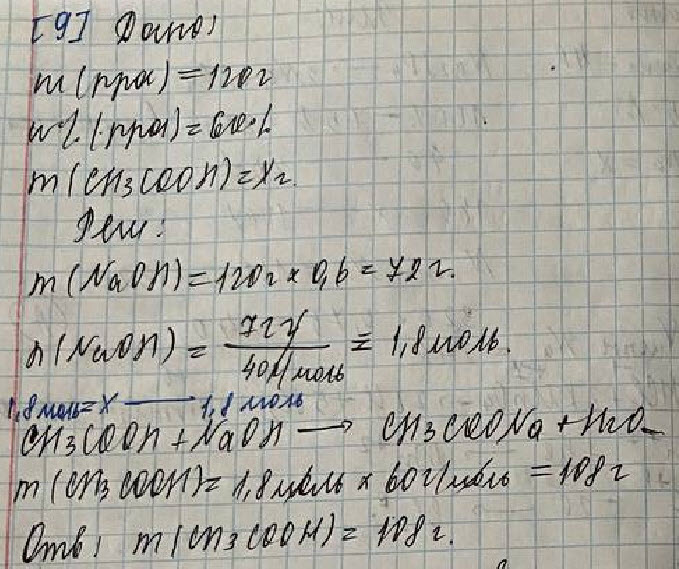 [9] Дано:
m(рра) = 120г
w%(рра) = 60%
m(CH3COOH) = Xг.
Реш:
m(NaOH) = 120г × 0,6 = 72г.
n(NaOH) = 72г / 40г/моль = 1,8моль.
1,8моль = X — 1,8 моль
CH3COOH + NaOH → CH3COONa + H2O
m(CH3COOH) = 1,8моль × 60г/моль = 108г
Отв: m(CH3COOH) = 108г.